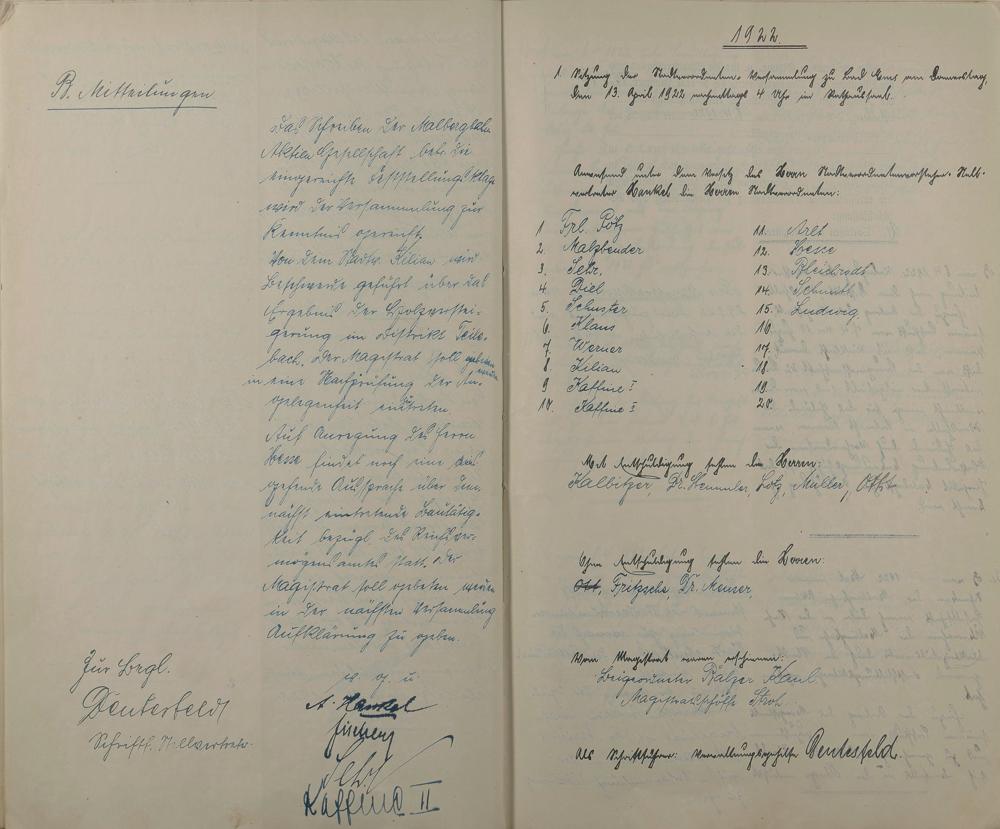 B. Mitteilungen
Das Schreiben der Malbergbahn
Aktien Gesellschaft betr. die
eingereichte Feststellungsklage
wird der Versammlung zur
Kenntnis gereicht.
Von dem Stadtv. Kilian wird
Beschwerde geführt über das
Ergebnis der Holzverstei-
gerung im Distrikt
bach. Der Magistrat soll gebeten werden
in eine Nachprüfung der An-
gelegenheit einzutreten.
Auf Anregung des Herrn
Hesse findet noch eine
gehende Aussprache über dem-
nächst eintretende Bautätig-
keit bezügl. des Reichsver-
mögensamts statt. Der
Magistrat soll gebeten werden
in der nächsten Versammlung
Aufklärung zu geben.
v. g. u.
A. Hankel
Sehr
Kaffine II
Zur Begl.
Denterfeld
Schriftf. Stellvertreter.
1922.
1. Sitzung der Stadtverordneten-Versammlung zu Bad Ems am Donnerstag,
den 13. April 1922 nachmittags 4 Uhr im Rathaussaal.
Anwesend unter dem Vorsitz des Herrn Stadtverordnetenvorsteher-Stell-
vertreter Hankel die Herren Stadtverordneten:
1 Frl. Pötz
2. Malzbender
3. Sehr.
4. Biel
5. Schuster
6. Klaus
7. Werner
8. Kilian
9 Kaffine I
10. Kaffine II
11. Arlt
12. Hesse
13. Bleichrodt
14. Schmidt
15. Ludwig
16.
17.
18.
19.
20.
Mit Entschuldigung fehlten die Herren:
Kalbitzer, Dr. Stemmler, Lotz, Müller, Ott
Ohne Entschuldigung fehlten die Herren:
Ott, Fritzsche, Dr. Menser
Vom Magistrat waren erschienen:
Beigeordneter Balzer, Kaul
Magistratsschöffe Stroh
Als Schriftführer: Verwaltungsgehilfe Denterfeld.